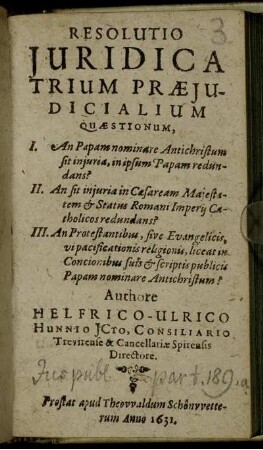 3
RESOLUTIO
JURIDICA
TRIUM PRÆJU-
DICIALIUM
QUÆSTIONUM,
I. An Papam nominare Antichristum
sit injuria, in ipsum Papam redun-
dans?
II. An sit injuria in Cæsaream Majesta-
tem & Status Romani Imperij Ca-
tholicos redundans?
III. An Protestantibus, sive Evangelicis,
vi pacificationis religionis, liceat in
Concionibus suis & scriptis publicis
Papam nominare Antichristum?
Authore
HELFRICO-ULRICO
HUNNIO JCto, CONSILIARIO
Trevirensi & Cancellariæ Spirensis
Directore.
Jus publ. part. 189.a
Prostat apud Theovvaldum Schönvvette-
rum Anno 1631.